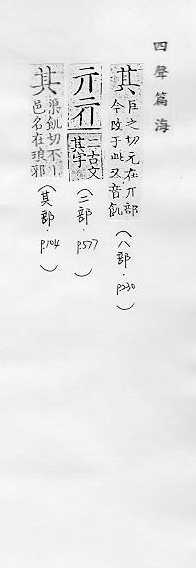 四聲篇海
其
巨之切元在丌部
今改于此又音飢
(八部.P.230)
亓亓
二古文
其字
(二部.P.577)
其
渠飢切不卜
邑名在琅邪
(其部.P.104)